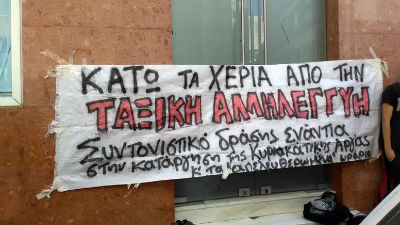 ΚΑΤΩ ΤΑ ΧΕΡΙΑ ΑΠΟ ΤΗΝ
ΤΑΞΙΚΗ ΑΛΛΗΛΕΓΓΥΗ
Συντονιστικό δράσης ενάντια
στην κατάργηση της Κυριακάτικης Αργίας
κ τα απελευθερωμένα ωράρια